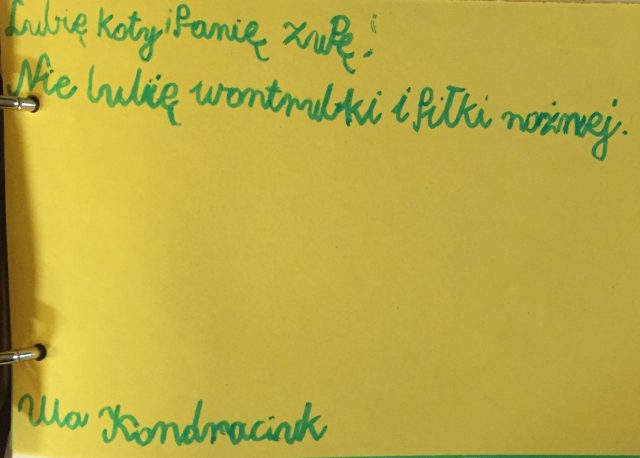 Lubię koty i Panię zupę;
Nie lubię wontrubki i piłki nożnej.
Ula Kondraciuk